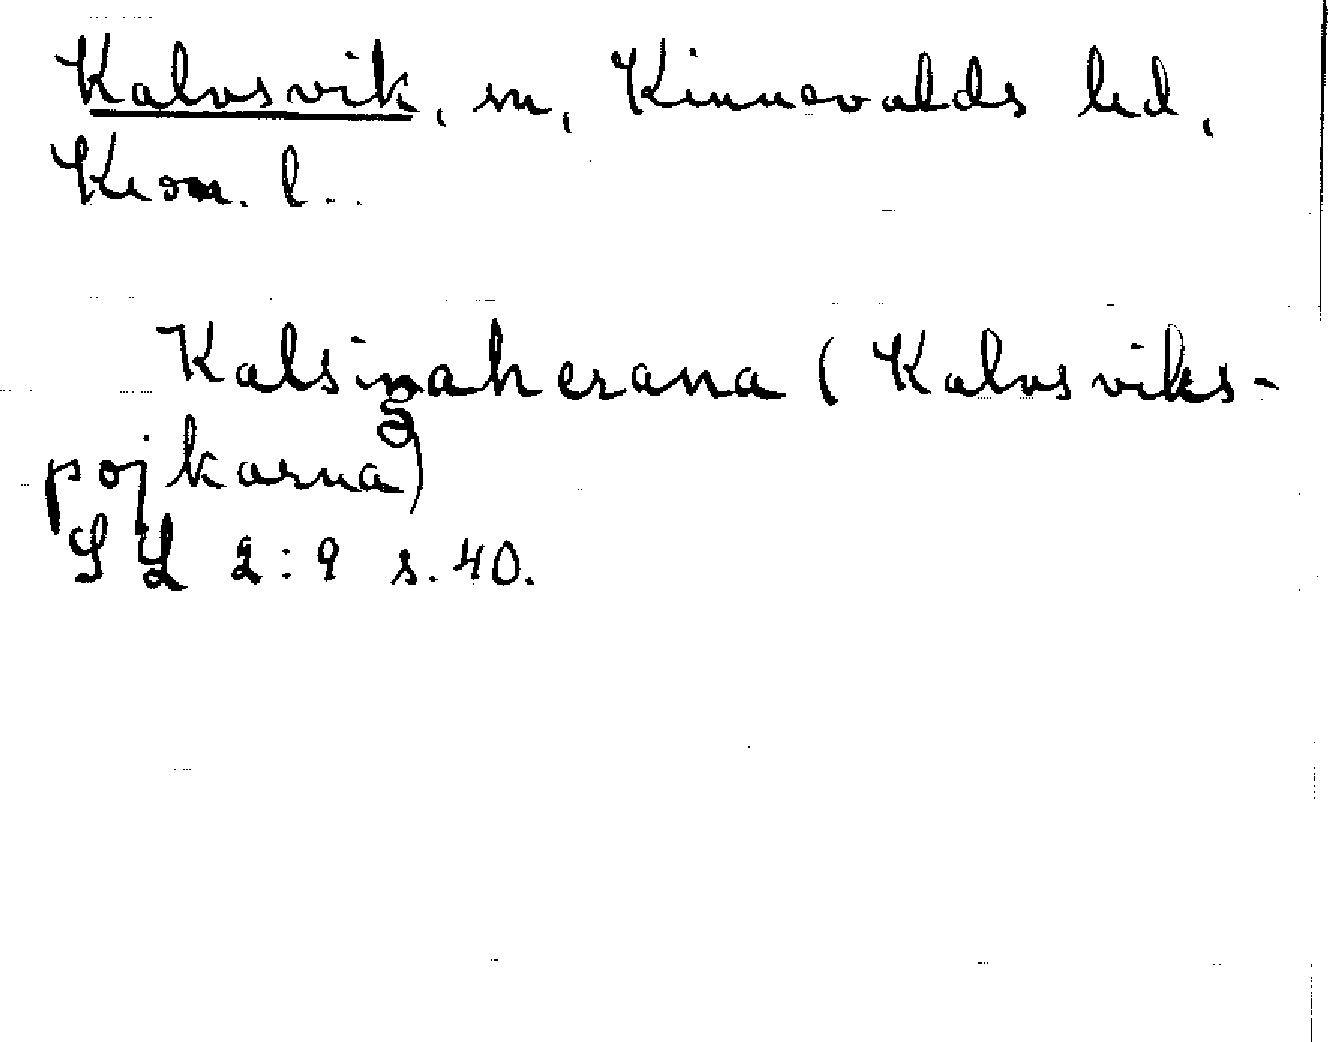 Kalvsvik, sn, Kinnevalds hd,
Kron. l.
Kalsinaherana (Kalvsviks-
pojkarna)
SL 2:9 s. 40.